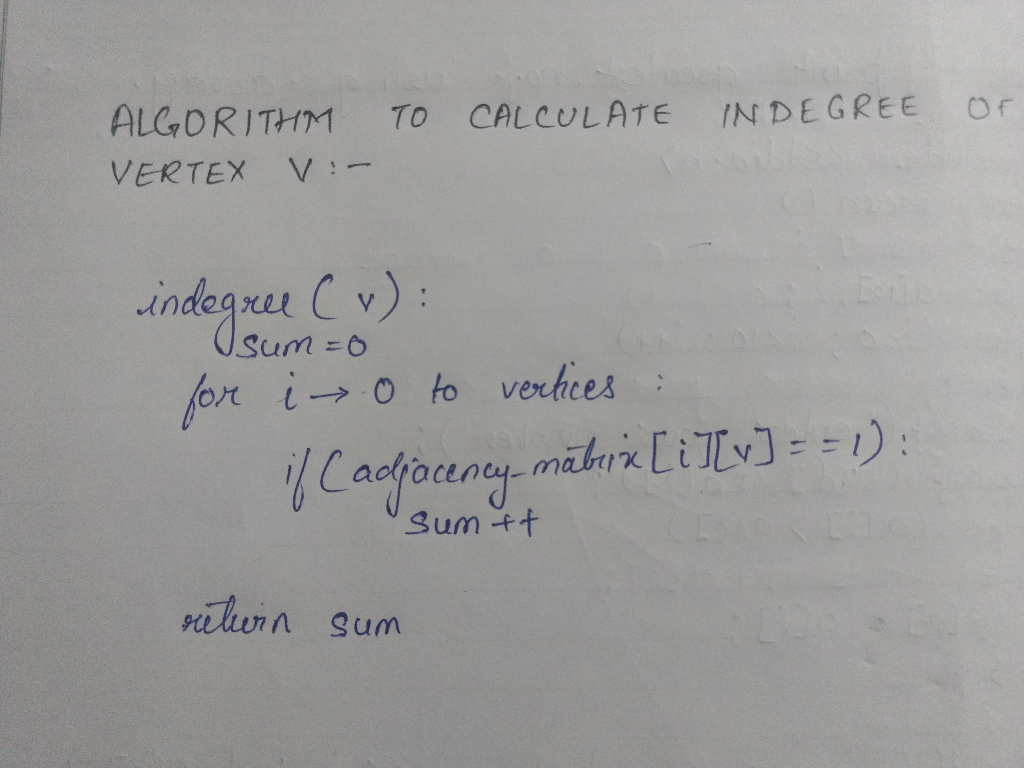 ALGORITHM TO CALCULATE INDEGREE OF
VERTEX V :-
indegree ( v ) :
sum = 0
for i → 0 to vertices :
if ( adjacency-matrix [i][v] == 1 ) :
sum ++
return sum